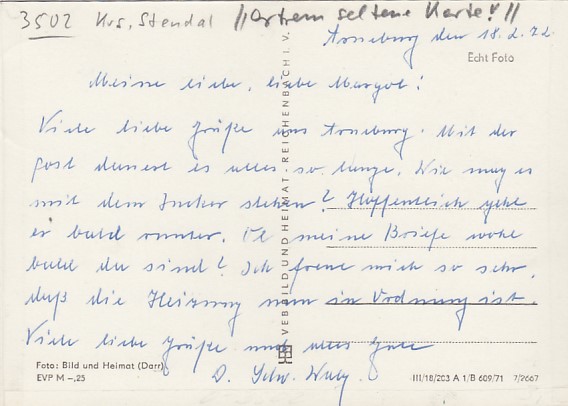 3502 Krs. Stendal //Extrem seltene Karte!//
Arneburg den 18.2.72
Echt Foto
Meine liebe, liebe Margot!
Viele liebe Grüße aus Arneburg. Mit der
Post dauert es alles so lange. Wie mag es
mit dem Zucker stehen? Hoffentlich geht
er bald runter. Ob meine Briefe wohl
bald da sind? Ich freue mich so sehr,
daß die Heizung nun in Ordnung ist.
Viele liebe Grüße und alles Gute
D. Schw.
VEB BILD UND HEIMAT · REICHENBACH I. V.
Foto: Bild und Heimat (Darr)
EVP M –,25
III/18/203 A 1/B 609/71 7/2667